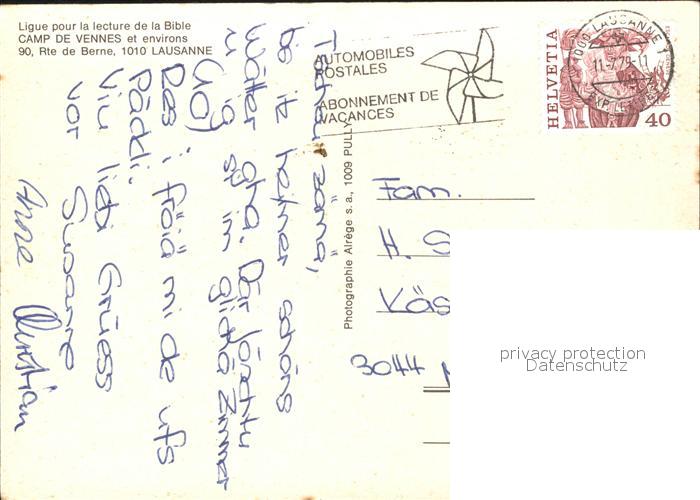 Ligue pour la lecture de la Bible
CAMP DE VENNES et environs
90, Rte de Berne, 1010 LAUSANNE
AUTOMOBILES
POSTALES
ABONNEMENT DE
VACANCES
HELVETIA
40
1000 LAUSANNE 1
11-7.79-11
Photographie Alrège s.a., 1009 PULLY
Tschau zäma,
bis itz heimer schöns
Wätter gha. Där
u ig si im gliche Zimmer
Res i fröiä mi de ufs
Päckli.
Viu liebi Grüess
vor Susanne
Anne Christian
Fam.
H. S
Väs
3044
privacy protection
Datenschutz